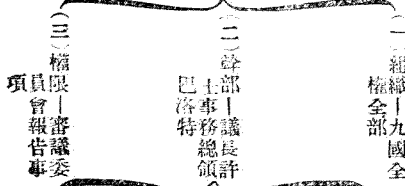 (一)組織—九國全
權全部
(二)幹部—議長許
士事務總領
巴洛特
(三)權限—審議委
員會報告事
項